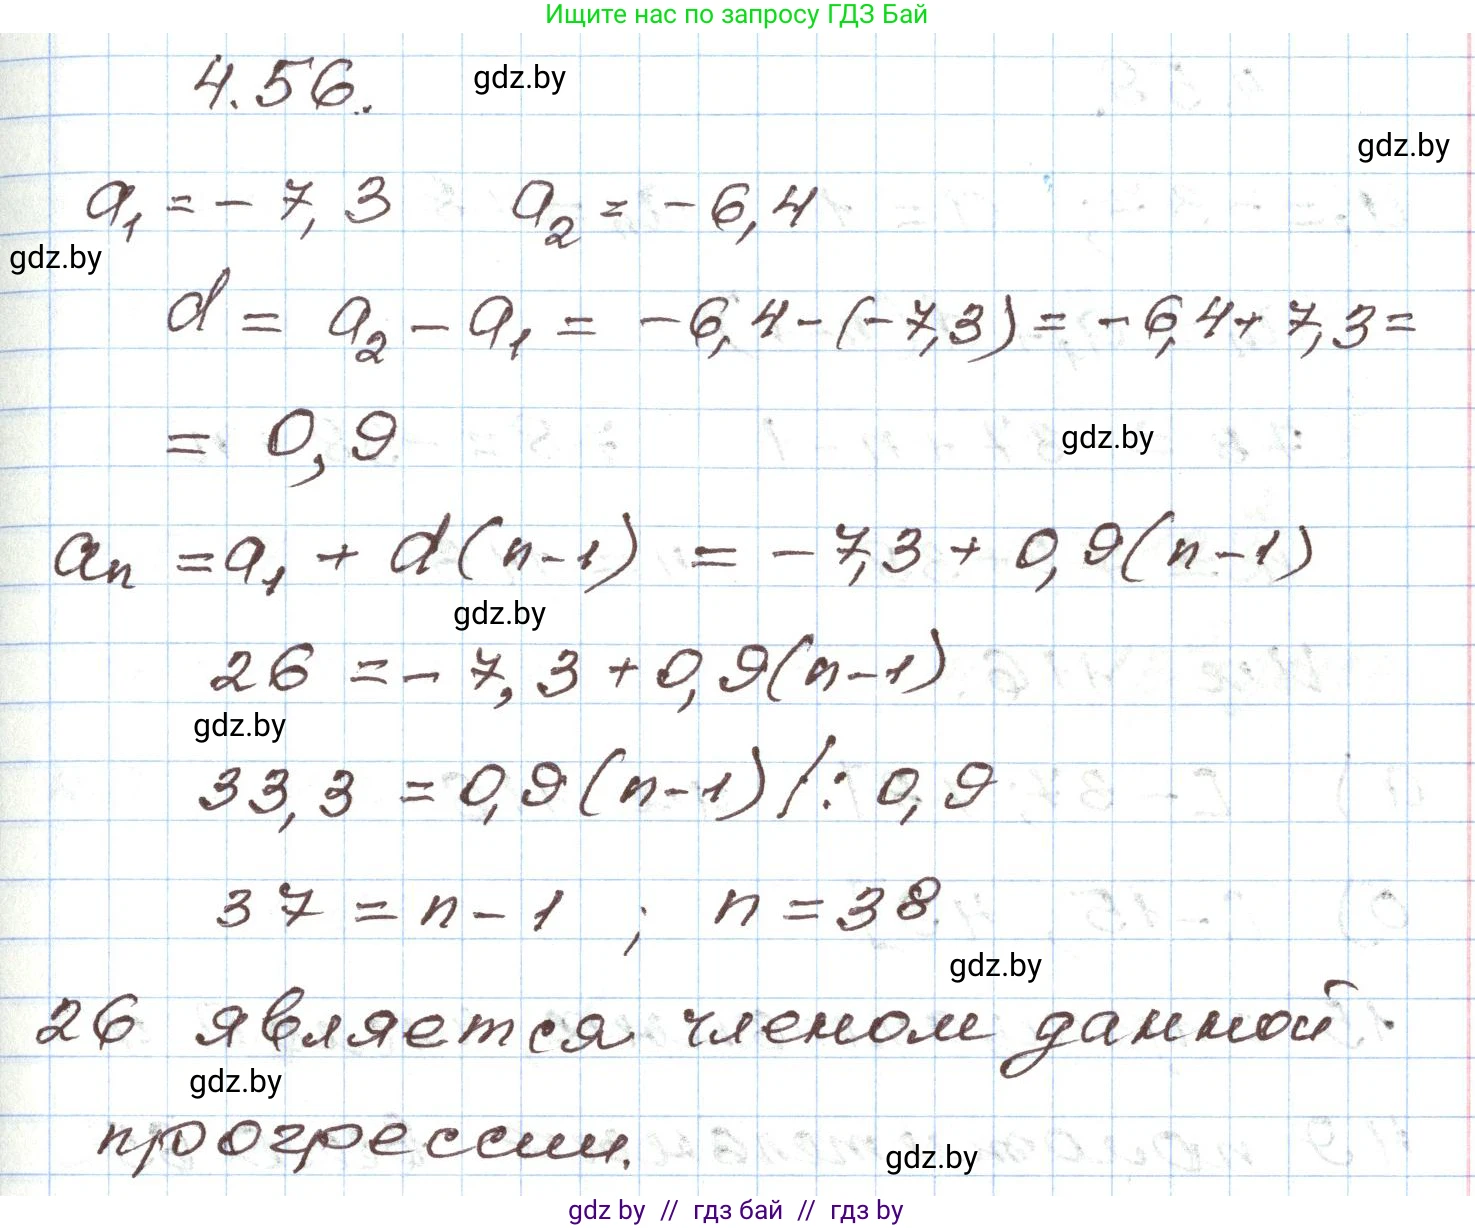 Ищите нас по запросу ГДЗ Бай
4.56.
gdz.by
gdz.by
a₁ = - 7,3 a₂ = - 6,4
gdz.by
d = a₂ - a₁ = -6,4-(-7,3) = -6,4+7,3=
= 0,9
gdz.by
aₙ = a₁ + d(n-1) = -7,3 + 0,9(n-1)
gdz.by
26 = -7,3 + 0,9(n-1)
gdz.by
33,3 = 0,9(n-1) /: 0,9
37 = n - 1 ; n = 38
gdz.by
26 является членом данной
gdz.by
прогрессии.
gdz.by
gdz by // гдз бай // гдз by